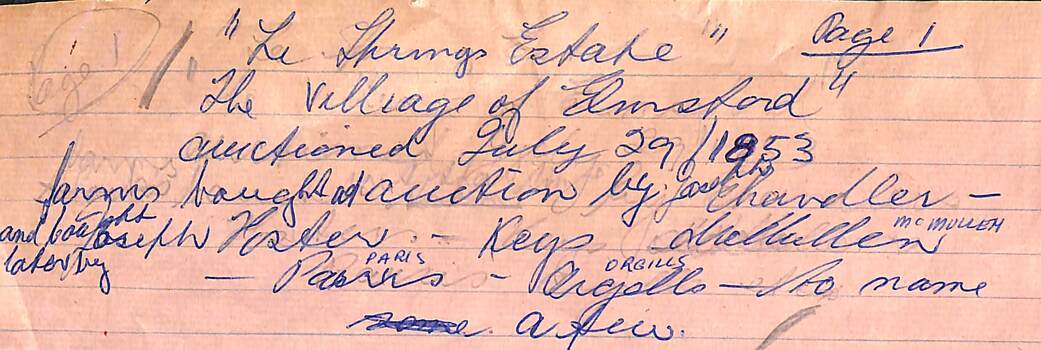 Page 1
"La Springs Estate" Page 1
"The Villiage of Elmsford"
auctioned July 29/1853
farms bought at auction by Joseph Chandler -
and bought later by Joseph Foster - Keys - McMullen MCMULLEN
- Parris PARIS - Orgills ORGILLS - to name
some a few.